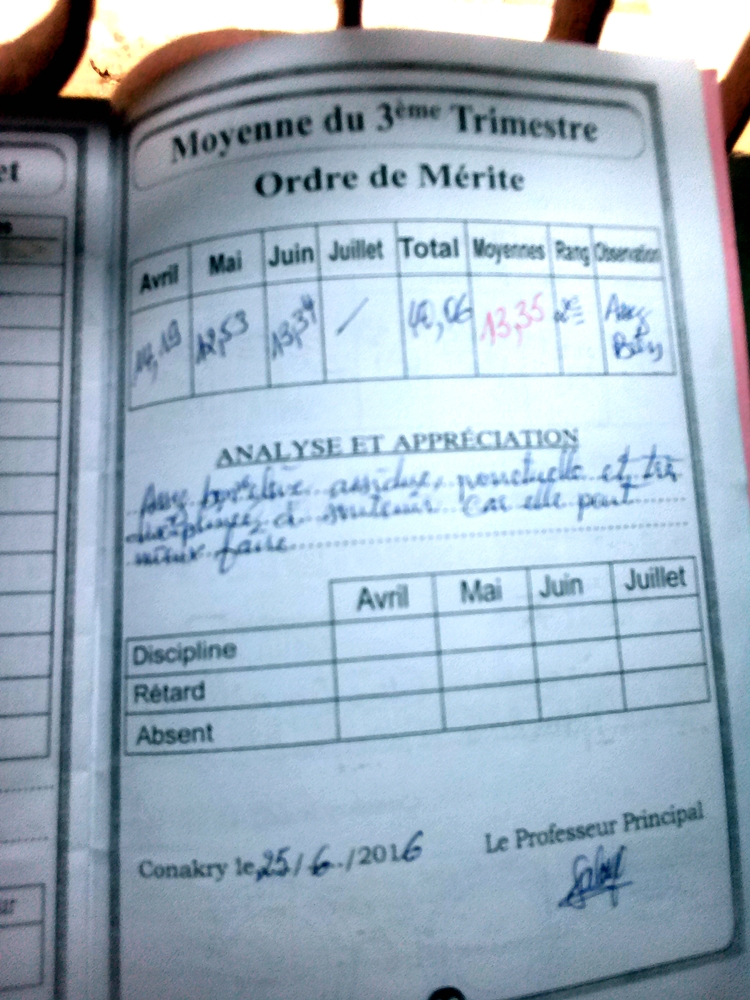 et
Moyenne du 3ème Trimestre
Ordre de Mérite
Avril Mai Juin Juillet Total Moyennes Rang Observation
14,19 12,53 13,34 / 40,06 13,35 2e Assez Bien
ANALYSE ET APPRÉCIATION
Assez assidue, ponctuelle et très
disciplinée, à soutenir car elle peut
mieux faire
Avril Mai Juin Juillet
Discipline
Rétard
Absent
Conakry le, 25/6/2016
Le Professeur Principal